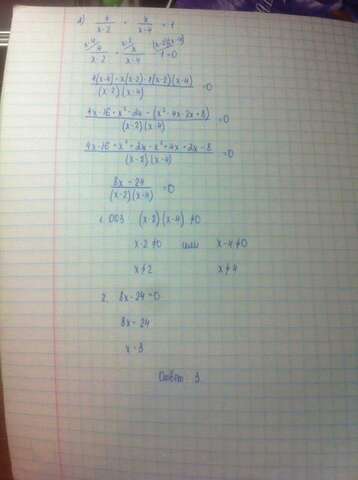 2) 4/(x-2) + x/(x-4) = 1
x-4/ 4/(x-2) + x-2/ x/(x-4) - (x-2)(x-4)/ 1 = 0
(4(x-4)+x(x-2)-1(x-2)(x-4))/((x-2)(x-4)) = 0
(4x-16+x²-2x-(x²-4x-2x+8))/((x-2)(x-4)) = 0
(4x-16+x²-2x-x²+4x+2x-8)/((x-2)(x-4)) = 0
(8x-24)/((x-2)(x-4)) = 0
1. ОДЗ (x-2)(x-4) ≠0
x-2 ≠0 или x-4≠0
x≠2 x≠4
2. 8x-24=0
8x=24
x=3
Ответ: 3.